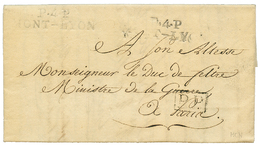 P.4.P
MONT-LYON
4.P
LY
A Son Altesse
Monseigneur le Duc de feltre
Ministre de la Guerre
a Paris
P.P.